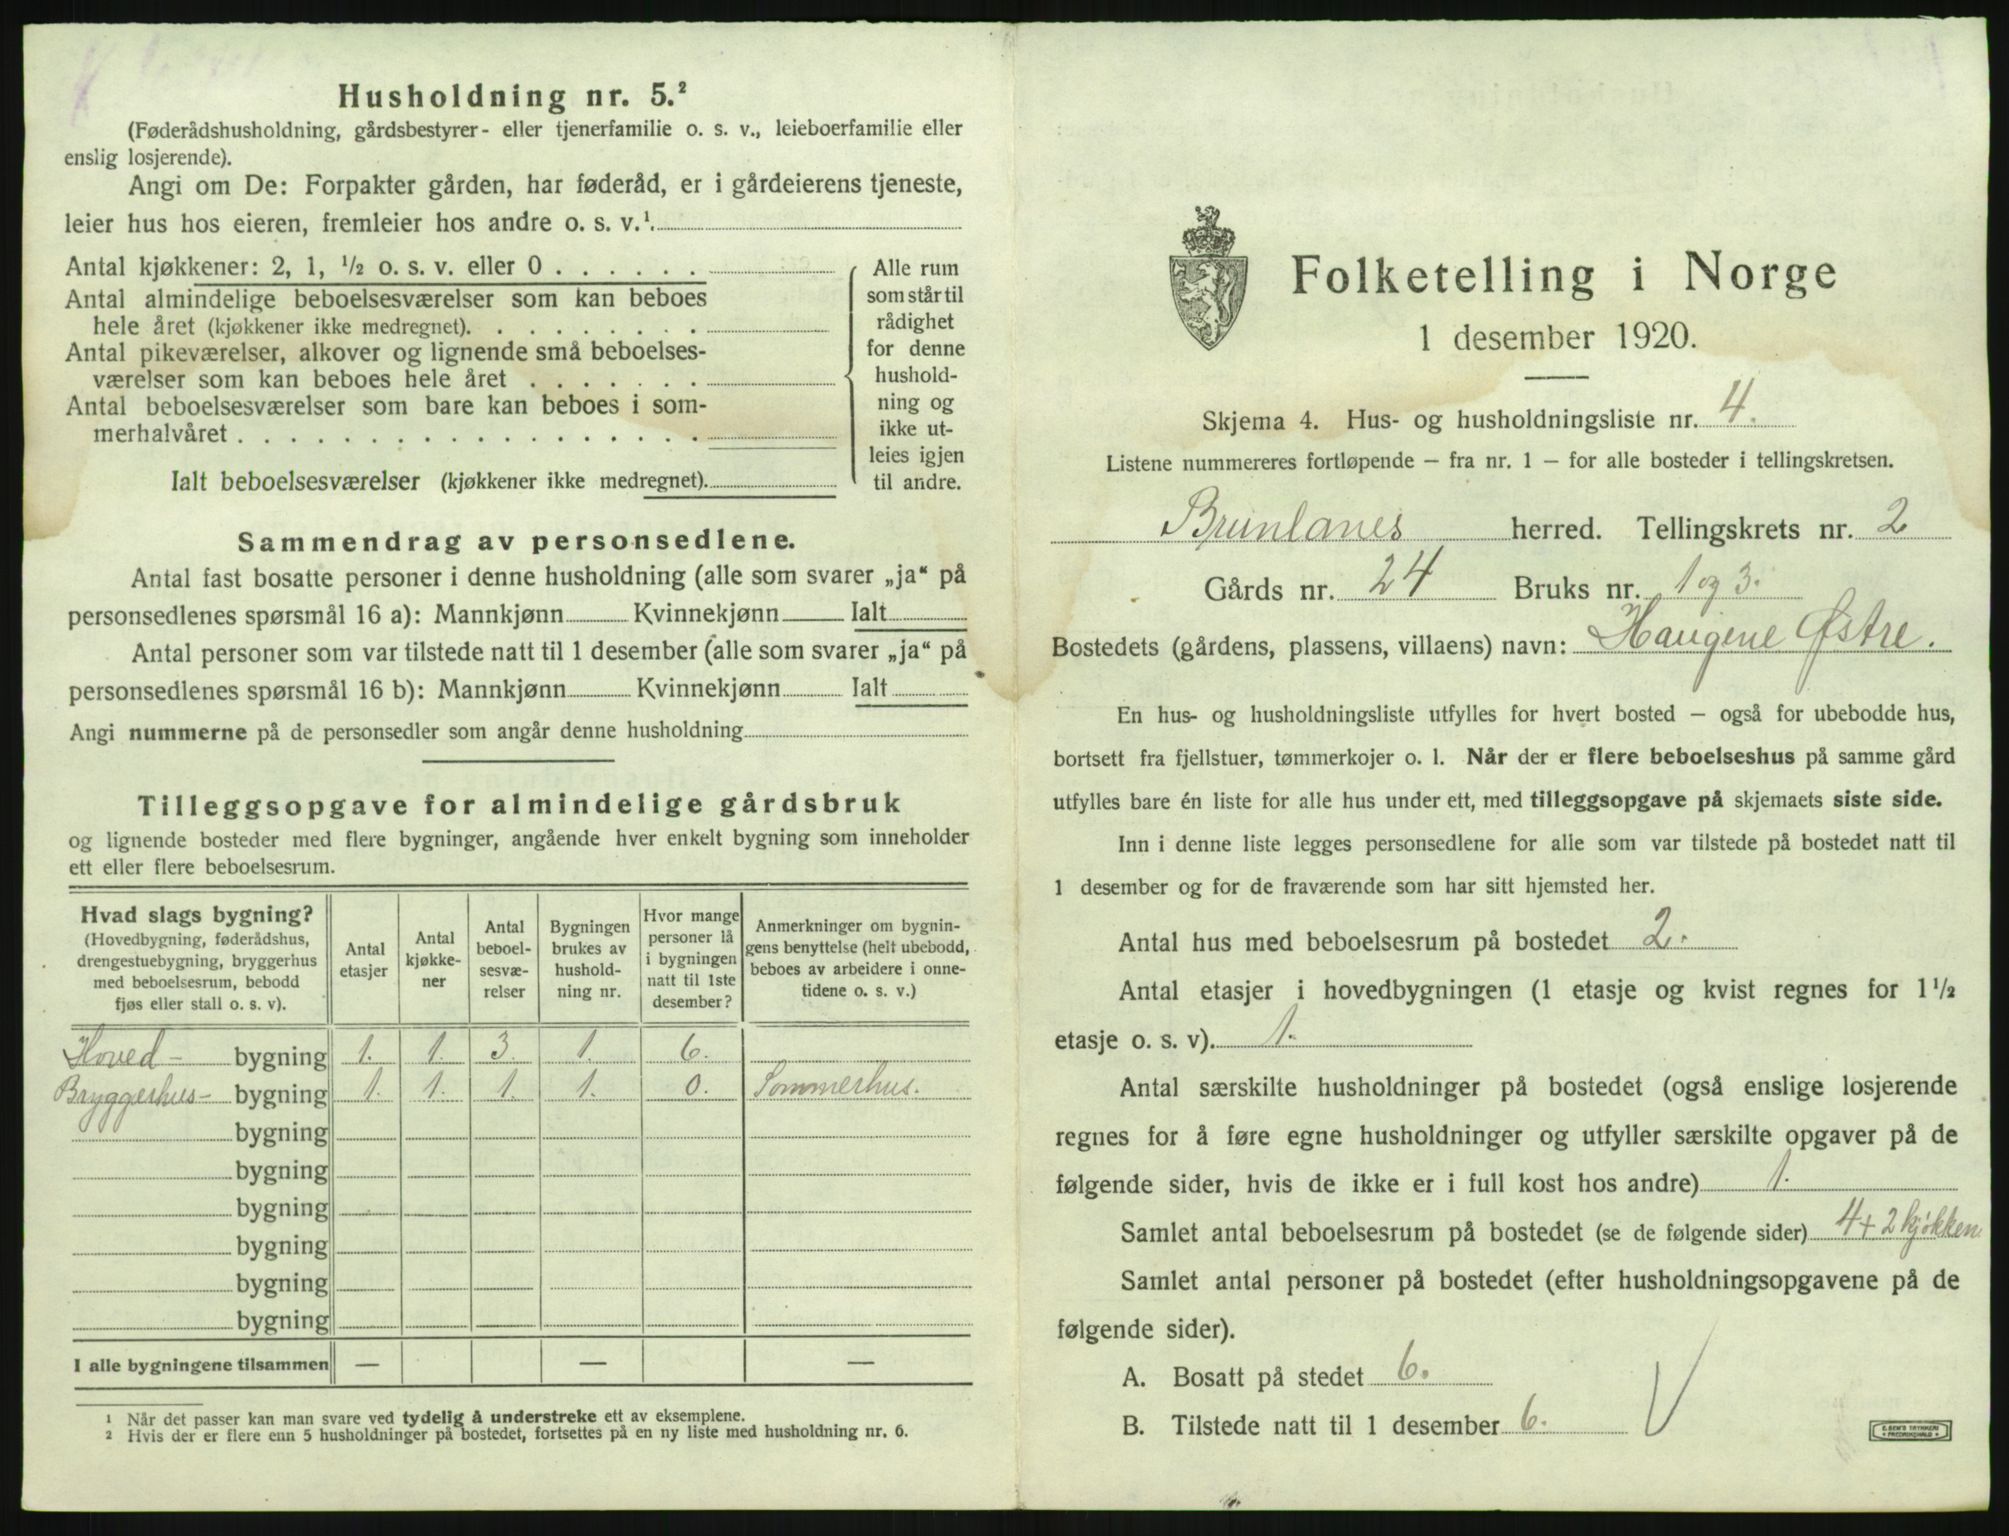 Husholdning nr. 5.²
(Føderådshusholdning, gårdsbestyrer- eller tjenerfamilie o. s. v., leieboerfamilie eller
enslig losjerende).
Angi om De: Forpakter gården, har føderåd, er i gårdeierens tjeneste,
leier hus hos eieren, fremleier hos andre o. s. v.¹.
Antal kjøkkener: 2, 1, ½ o. s. v. eller 0 . . . . . .
Antal almindelige beboelsesværelser som kan beboes
hele året (kjøkkener ikke medregnet). . . . . . . . .
Antal pikeværelser, alkover og lignende små beboelses-
værelser som kan beboes hele året . . . . . . .
Antal beboelsesværelser som bare kan beboes i som-
merhalvåret . . . . . . . . . . . . . . . . . .
Ialt beboelsesværelser (kjøkkener ikke medregnet).
Alle rum
som står til
rådighet
for denne
hushold-
ning og
ikke ut-
leies igjen
til andre.
Sammendrag av personsedlene.
Antal fast bosatte personer i denne husholdning (alle som svarer „ja“ på
personsedlenes spørsmål 16 a): Mannkjønn Kvinnekjønn Ialt
Antal personer som var tilstede natt til 1 desember (alle som svarer „ja“ på
personsedlenes spørsmål 16 b): Mannkjønn Kvinnekjønn Ialt
Angi nummerne på de personsedler som angår denne husholdning
Tilleggsopgave for almindelige gårdsbruk
og lignende bosteder med flere bygninger, angående hver enkelt bygning som inneholder
ett eller flere beboelsesrum.
Hvad slags bygning?
(Hovedbygning, føderådshus,
drengestuebygning, bryggerhus
med beboelsesrum, bebodd
fjøs eller stall o. s. v).
Antal
etasjer
Antal
kjøkke-
ner
Antal
beboel-
sesvæ-
relser
Bygningen
brukes av
hushold-
ning nr.
Hvor mange
personer lå
i bygningen
natt til 1ste
desember?
Anmerkninger om bygnin-
gens benyttelse (helt ubebodd,
beboes av arbeidere i onne-
tidene o. s. v.)
Hoved- bygning 1. 1. 3. 1. 6.
Bryggerhus- bygning 1. 1. 1. 1. 0. Sommerhus.
bygning
bygning
bygning
bygning
bygning
bygning
I alle bygningene tilsammen — — —
¹ Når det passer kan man svare ved tydelig å understreke ett av eksemplene.
² Hvis der er flere enn 5 husholdninger på bostedet, fortsettes på en ny liste med husholdning nr. 6.
Folketelling i Norge
1 desember 1920.
Skjema 4. Hus- og husholdningsliste nr. 4.
Listene nummereres fortløpende — fra nr. 1 — for alle bosteder i tellingskretsen.
Brunlanes herred. Tellingskrets nr. 2
Gårds nr. 24 Bruks nr. 1 og 3.
Bostedets (gårdens, plassens, villaens) navn: Haugene Østre.
En hus- og husholdningsliste utfylles for hvert bosted — også for ubebodde hus,
bortsett fra fjellstuer, tømmerkojer o. l. Når der er flere beboelseshus på samme gård
utfylles bare én liste for alle hus under ett, med tilleggsopgave på skjemaets siste side.
Inn i denne liste legges personsedlene for alle som var tilstede på bostedet natt til
1 desember og for de fraværende som har sitt hjemsted her.
Antal hus med beboelsesrum på bostedet 2.
Antal etasjer i hovedbygningen (1 etasje og kvist regnes for 1½
etasje o. s. v). 1.
Antal særskilte husholdninger på bostedet (også enslige losjerende
regnes for å føre egne husholdninger og utfyller særskilte opgaver på de
følgende sider, hvis de ikke er i full kost hos andre) 1.
Samlet antal beboelsesrum på bostedet (se de følgende sider) 4 + 2 kjøkken.
Samlet antal personer på bostedet (efter husholdningsopgavene på de
følgende sider).
A. Bosatt på stedet 6.
B. Tilstede natt til 1 desember 6.